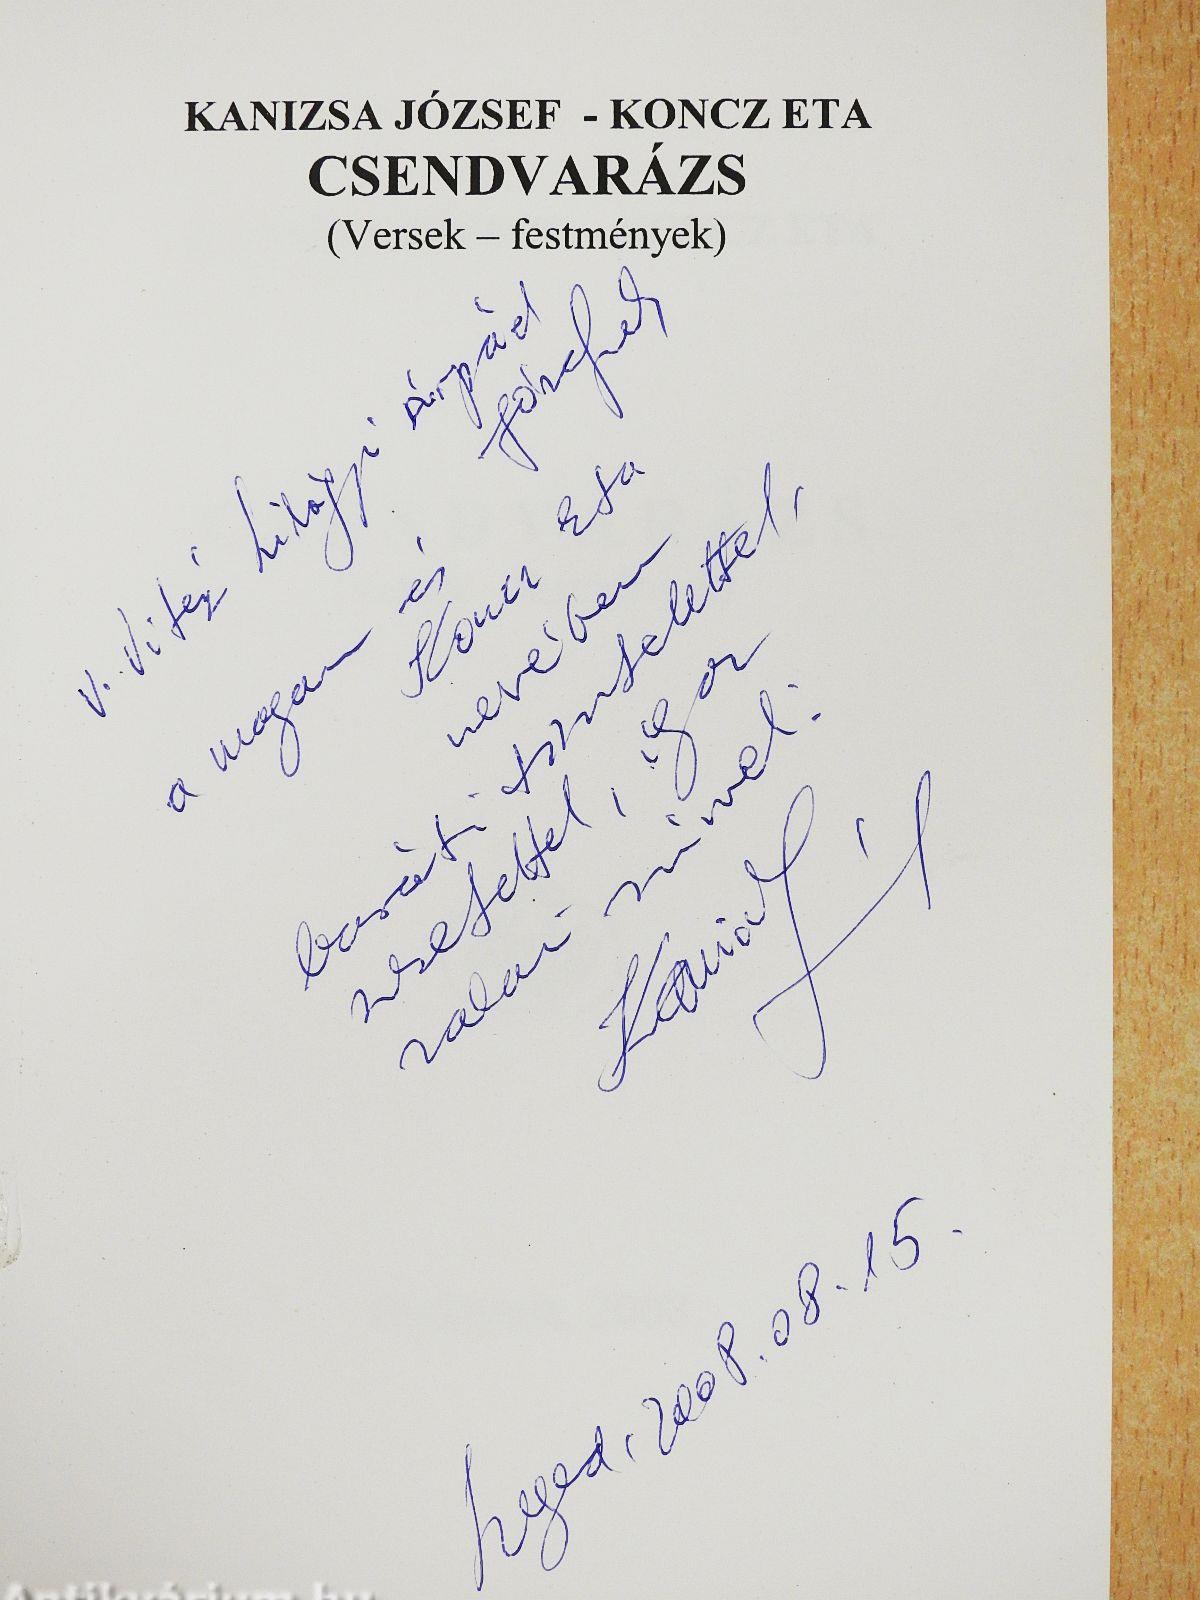 KANIZSA JÓZSEF - KONCZ ETA
CSENDVARÁZS
(Versek – festmények)
v. Vitéz Szilágyi Árpád
Józsefnek
a magam és
Koncz Eta
nevében
baráti tisztelettel,
szeretettel, igaz
zalai szívvel:
Kanizsa J
Szeged, 2008.08.15.
Antikvárium.hu